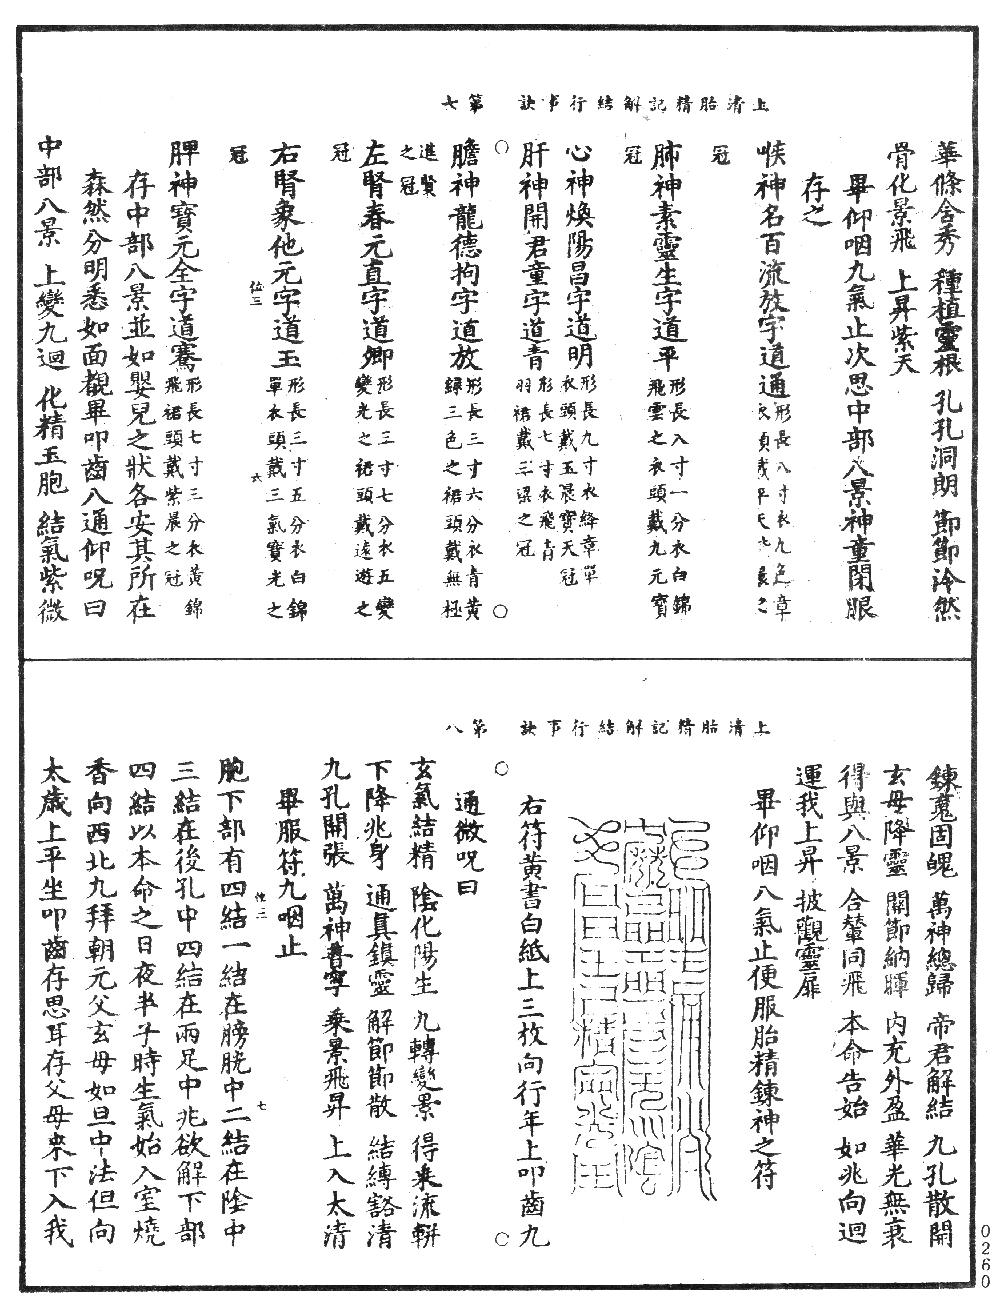 上清胎精記解結行事訣　第七
華條含秀　種植靈根　孔孔洞朗　節節泠然
骨化景飛　上昇紫天
畢仰咽九氣止次思中部八景神童閉眼
存之
喉神名百流放字道通形長八寸衣九色章
冠
肺神素靈生字道平形長八寸一分衣白錦飛雲之衣頭戴九元寶
冠
心神煥陽昌字道明形長九寸衣絳章單衣頭戴五晨寶天冠
肝神開君童字道青形長七寸衣飛青羽裙戴三梁之冠
膽神龍德拘字道放形長三寸六分衣青黃綠三色之裙頭戴無極
進賢之冠
左腎春元直字道卿形長三寸七分衣五變變光之裙頭戴遠遊之
冠
右腎象他元字道玉形長三寸五分衣白錦單衣頭戴三氣寶光之
位三　六
冠
脾神寶元全字道騫形長七寸三分衣黃錦飛裙頭戴紫晨之冠
存中部八景並如嬰兒之狀各安其所在
森然分明悉如面觀畢叩齒八通仰呪曰
中部八景　上變九迴　化精玉胞　結氣紫微
上清胎精記解結行事訣　第八
鍊魂固魄　萬神總歸　帝君解結　九孔散開
玄母降靈　關節納暉　內充外盈　華光無衰
得與八景　合輦同飛　本命告始　如兆向迴
運我上昇　披觀靈扉
畢仰咽八氣止便服胎精鍊神之符
右符黃書白紙上三枚向行年上叩齒九
通微呪曰
玄氣結精　陰化陽生　九轉變景　得乘流軿
下降兆身　通真鎮靈　解節節散　結縛豁清
九孔開張　萬神普寧　乘景飛昇　上入太清
畢服符九咽止
胞下部有四結一結在膀胱中二結在陰中
三結在後孔中四結在兩足中兆欲解下部
四結以本命之日夜半子時生氣始入室燒
香向西北九拜朝元父玄母如旦中法但向
太歲上平坐叩齒存思耳存父母來下入我
0260